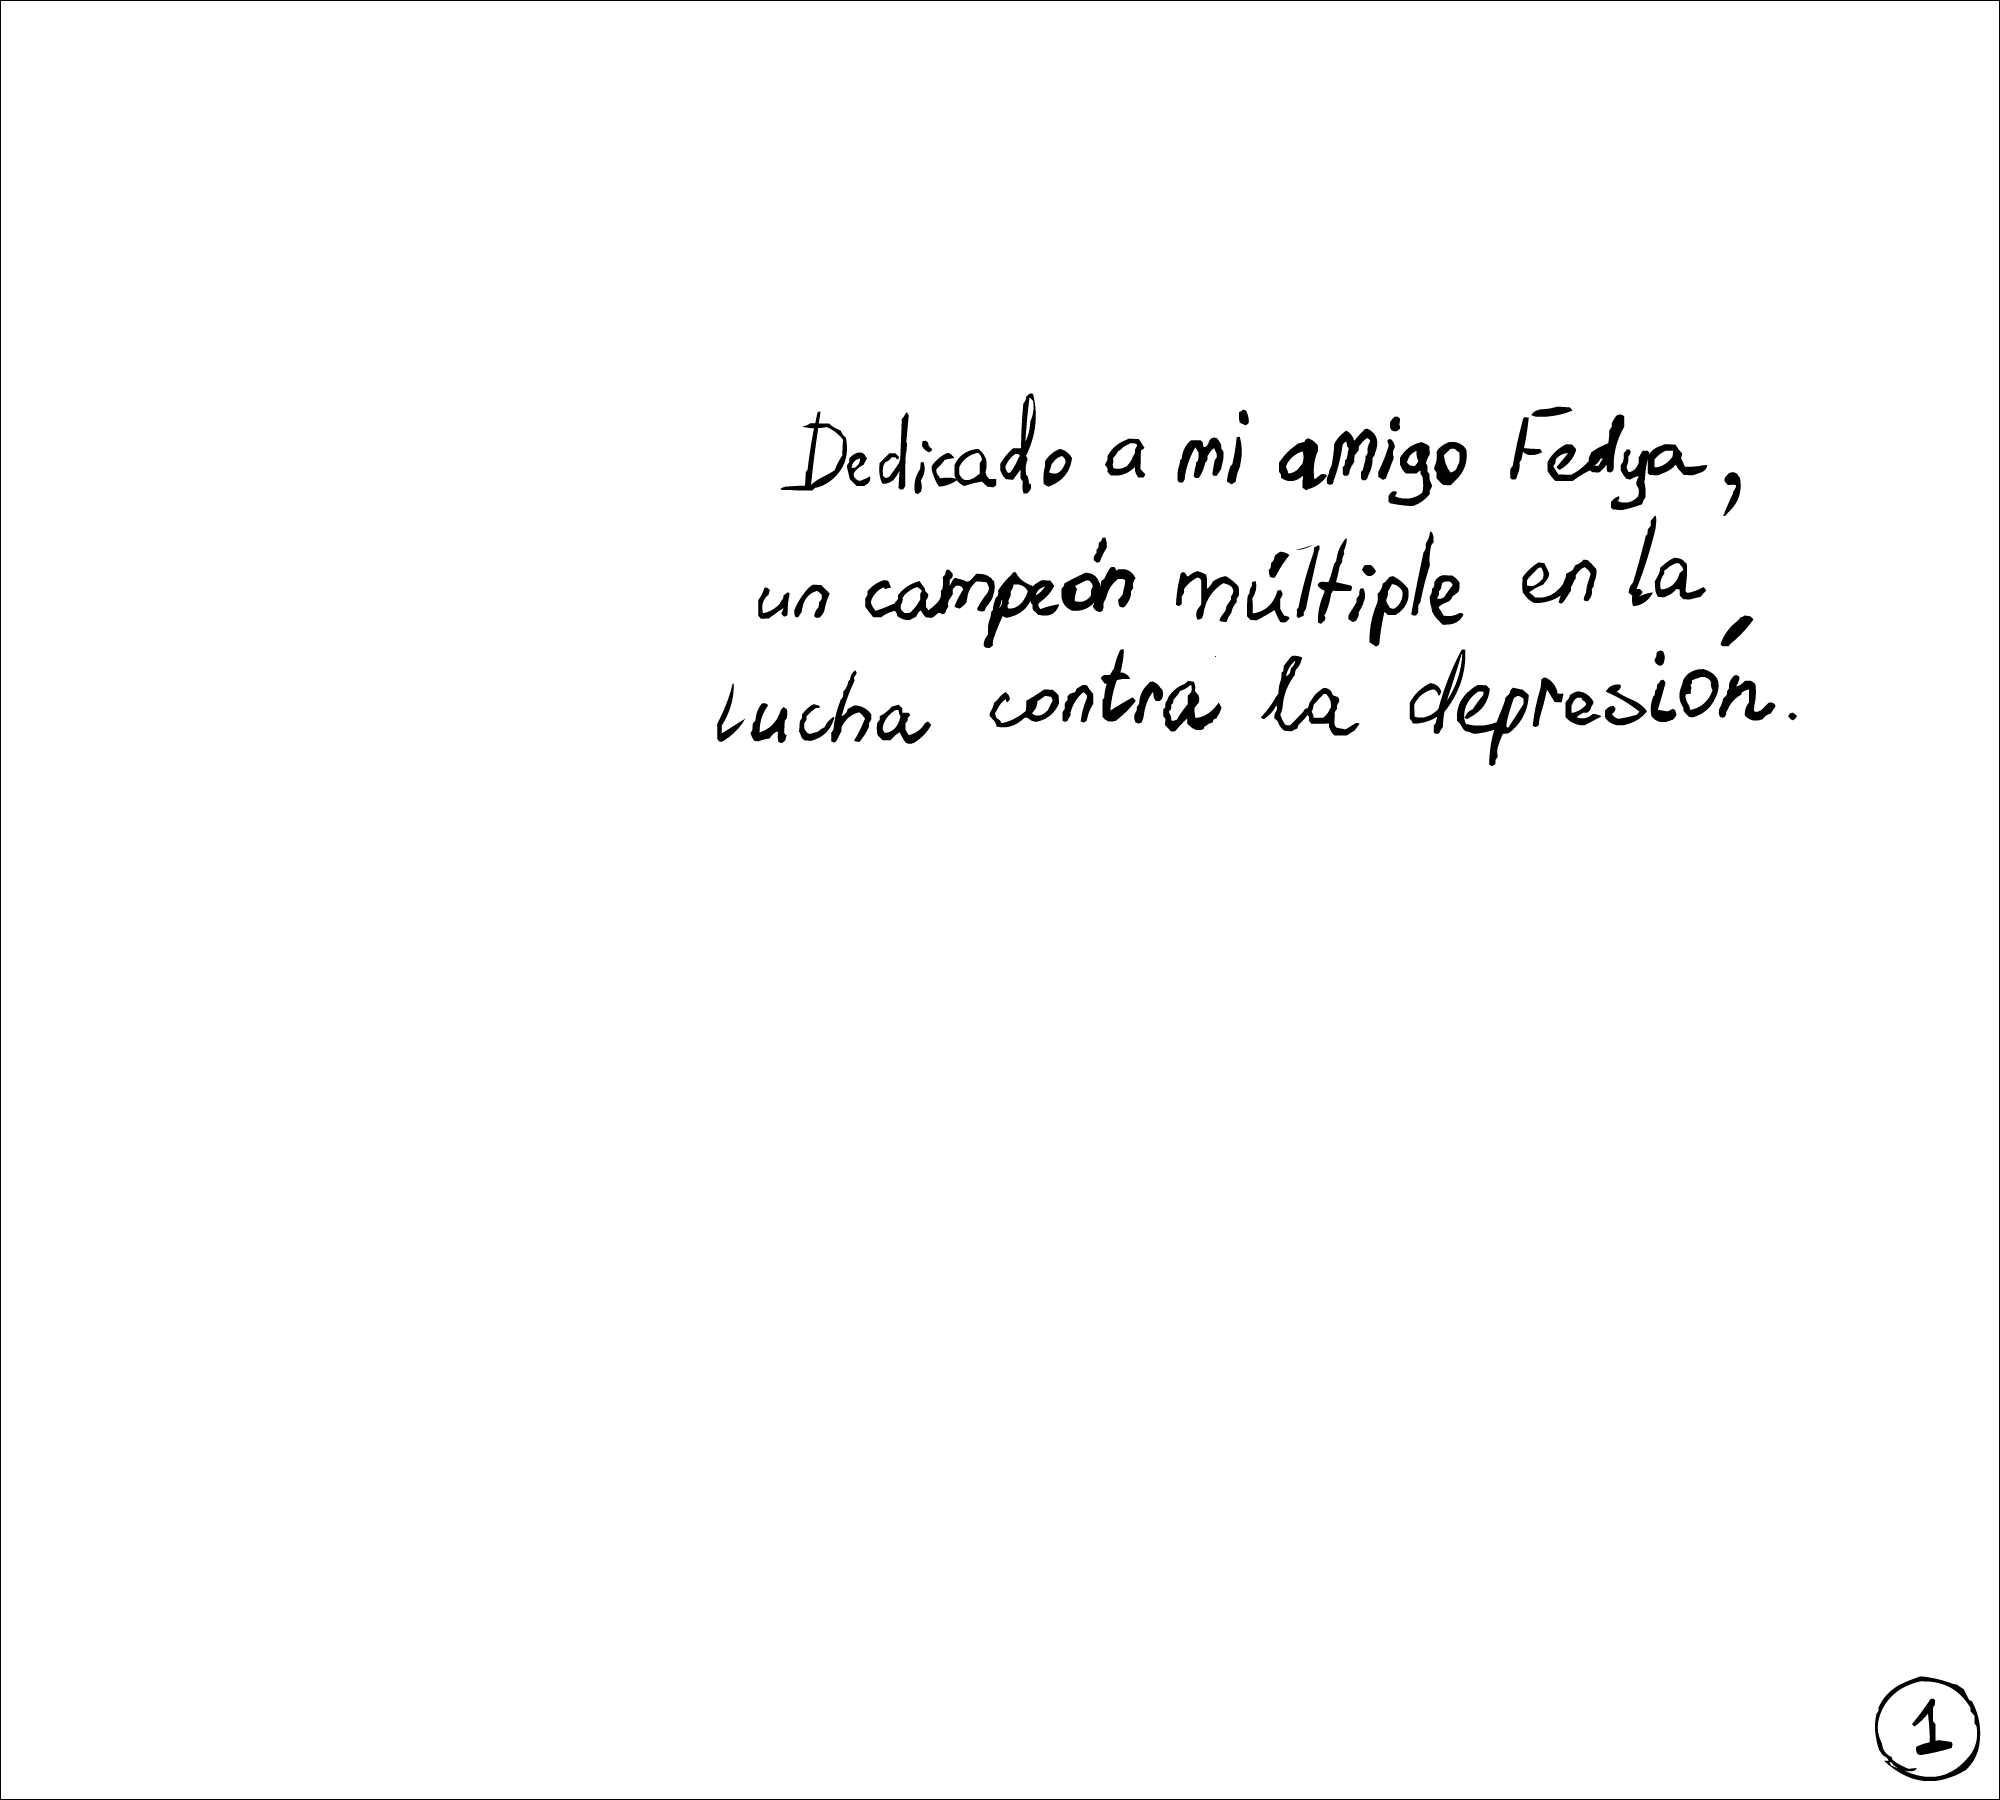 Dedicado a mi amigo Fedya,
un campeón múltiple en la
lucha contra la depresión.
1